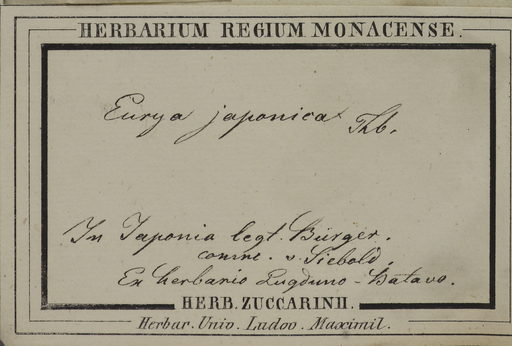 HERBARIUM REGIUM MONACENSE.
Eurya japonica Thb.
In Japonia legt. Bürger.
comm. v. Siebold.
Ex herbario Lugduno-Batavo.
HERB. ZUCCARINII.
Herbar. Univ. Ludov. Maximil.